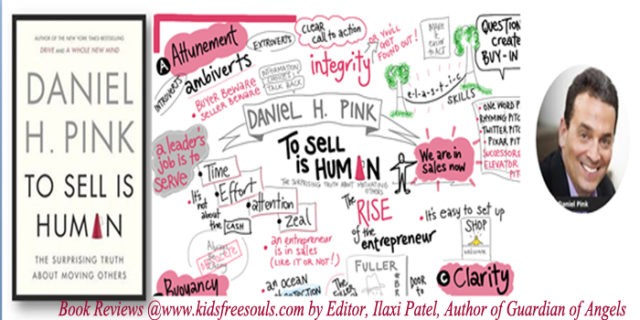 AUTHOR OF THE NEW YORK TIMES BESTSELLERS
DRIVE AND A WHOLE NEW MIND
DANIEL
H. PINK
TO SELL IS
HUMAN
THE SURPRISING TRUTH
ABOUT MOVING OTHERS
A Attunement
ambiverts
INTROVERTS
EXTROVERTS
BUYER BEWARE
SELLER BEWARE
CLEAR
call to action
integrity
YOU'LL
GET
FOUND OUT!
e-l-a-s-t-i-c
SKILLS
QUESTION
create
BUY-IN
DANIEL H. PINK
TO SELL
IS HUMAN
a leader's
job is to
SERVE
Time
Effort
attention
Zeal
It's
not
about
the CASH
an entrepreneur
is in sales
(LIKE IT OR NOT!)
Buoyancy
an OCEAN
We are in
sales now
ONE WORD P
RHYMING PITC
TWITTER PITC
PIXAR PIT
ELEVATOR
PIT
The
RISE
of the
entrepreneur
It's easy to set up
SHOP
FULLER
DOOR
TO
C Clarity
Daniel Pink
Book Reviews @www.kidsfreesouls.com by Editor, Ilaxi Patel, Author of Guardian of Angels